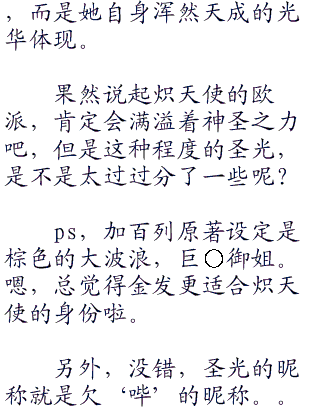 ，而是她自身浑然天成的光
华体现。
果然说起炽天使的欧
派，肯定会满溢着神圣之力
吧，但是这种程度的圣光，
是不是太过过分了一些呢？
ps，加百列原著设定是
棕色的大波浪，巨○御姐。
嗯，总觉得金发更适合炽天
使的身份啦。
另外，没错，圣光的昵
称就是欠‘哔’的昵称。。